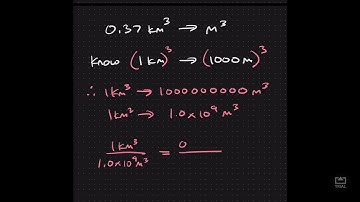 0.37 km³ → m³
Know (1 km)³ → (1000 m)³
∴ 1 km³ → 1000000000 m³
1 km³ → 1.0 × 10⁹ m³
1 km³ / 1.0 × 10⁹ m³ = 0